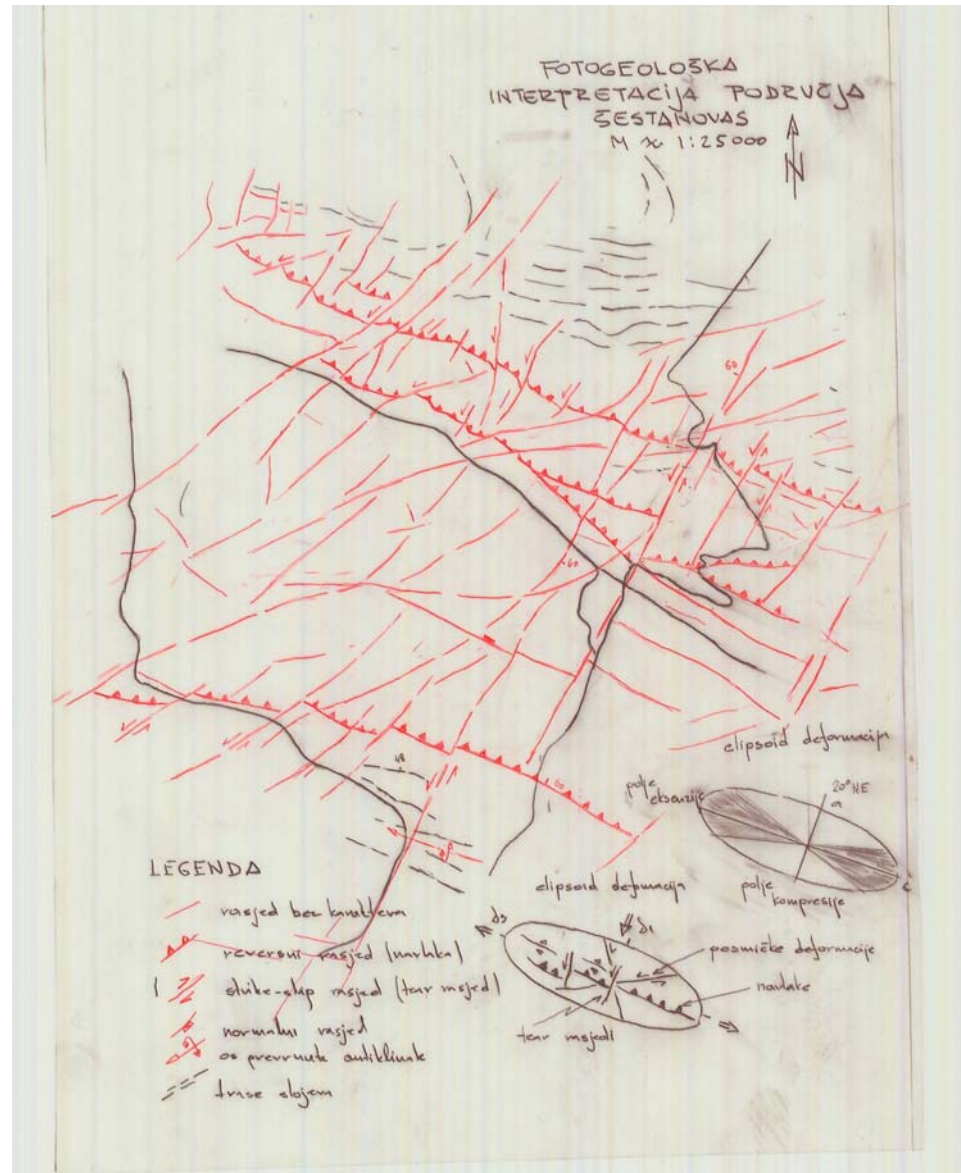 FOTOGEOLOŠKA
INTERPRETACIJA PODRUČJA
ŠESTANOVAC
M ≈ 1:25000
N
60
60
60
48
elipsoid deformacija
polje
ekstenzije
20° NE
a
c
polje
kompresije
LEGENDA
rasjed bez karaktera
reversni rasjed (navlaka)
strike-slip rasjed (tear rasjed)
normalni rasjed
os prevrnute antiklinale
trase slojeva
elipsoid deformacija
δ3
δ1
posmične deformacije
navlake
tear rasjedi